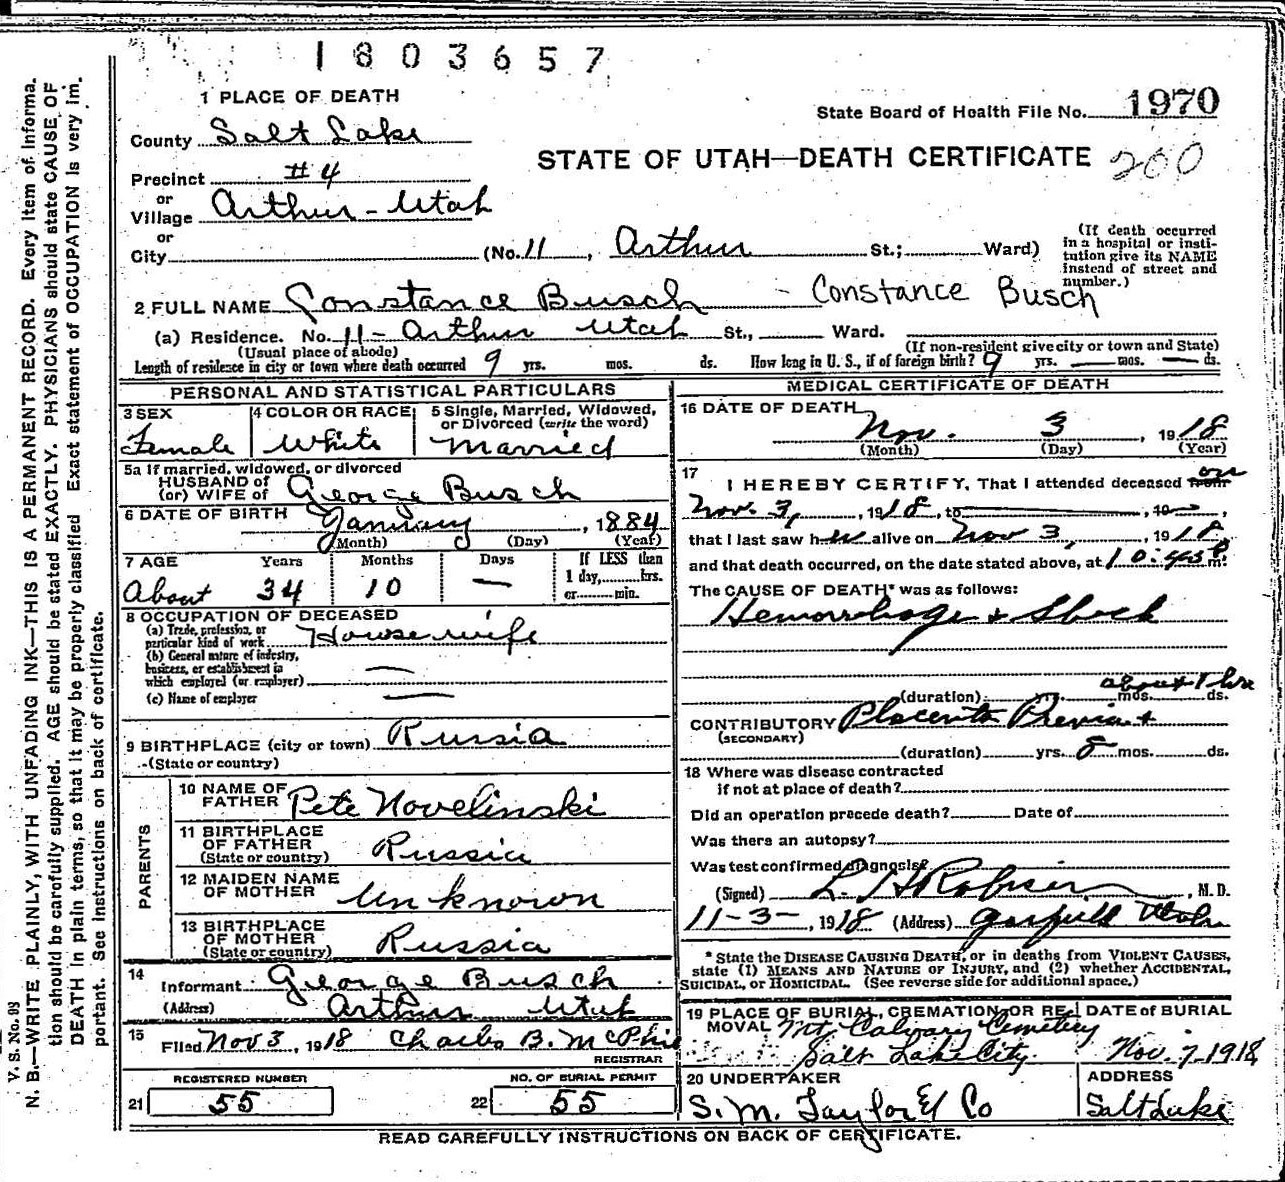 1803657
1 PLACE OF DEATH
State Board of Health File No. 1970
County Salt Lake
STATE OF UTAH—DEATH CERTIFICATE 200
Precinct #4
or
Village Arthur - Utah
or
City (No. 11, Arthur St.; Ward)
(If death occurred in a hospital or insti-
tution give its NAME
instead of street and
number.)
2 FULL NAME Constance Busch - Constance Busch
(a) Residence. No. 11 - Arthur Utah St., Ward.
(Usual place of abode) (If non-resident give city or town and State)
Length of residence in city or town where death occurred 9 yrs. mos. ds. How long in U. S., if of foreign birth? 9 yrs. — mos. — ds.
PERSONAL AND STATISTICAL PARTICULARS
3 SEX Female
4 COLOR OR RACE White
5 Single, Married, Widowed,
or Divorced (write the word)
Married
5a If married, widowed, or divorced
HUSBAND of
(or) WIFE of George Busch
6 DATE OF BIRTH January, 1884
(Month) (Day) (Year)
7 AGE Years Months Days If LESS than
1 day, hrs.
or min.
About 34 10 —
8 OCCUPATION OF DECEASED
(a) Trade, profession, or
particular kind of work Housewife
(b) General nature of industry,
business, or establishment in
which employed (or employer) —
(c) Name of employer —
9 BIRTHPLACE (city or town) Russia
(State or country)
PARENTS
10 NAME OF
FATHER Pete Novelinski
11 BIRTHPLACE
OF FATHER
(State or country) Russia
12 MAIDEN NAME
OF MOTHER Unknown
13 BIRTHPLACE
OF MOTHER
(State or country) Russia
14
Informant George Busch
(Address) Arthur Utah
15
Filed Nov 3, 1918 Charles B. McPhie
REGISTRAR
REGISTERED NUMBER
21 55
NO. OF BURIAL PERMIT
22 55
MEDICAL CERTIFICATE OF DEATH
16 DATE OF DEATH
Nov. 3, 1918
(Month) (Day) (Year)
17
I HEREBY CERTIFY, That I attended deceased from on
Nov. 3, 1918, to , 19 ,
that I last saw her alive on Nov 3, 1918,
and that death occurred, on the date stated above, at 10:45 P m.
The CAUSE OF DEATH* was as follows:
Hemorrhage & Shock
about 1 hr
(duration) mos. ds.
CONTRIBUTORY Placenta Previa +
(SECONDARY)
(duration) yrs. 8 mos. ds.
18 Where was disease contracted
if not at place of death?
Did an operation precede death? Date of
Was there an autopsy?
Was test confirmed diagnosis?
(Signed) L. H., M. D.
11-3-, 1918 (Address) Garfield Utah
* State the DISEASE CAUSING DEATH, or in deaths from VIOLENT CAUSES,
state (1) MEANS AND NATURE OF INJURY, and (2) whether ACCIDENTAL,
SUICIDAL, or HOMICIDAL. (See reverse side for additional space.)
19 PLACE OF BURIAL, CREMATION OR RE-
MOVAL Mt. Calvary Cemetery
Salt Lake City.
DATE OF BURIAL
Nov. 7-1918
20 UNDERTAKER
S. M. Taylor & Co
ADDRESS
Salt Lake
READ CAREFULLY INSTRUCTIONS ON BACK OF CERTIFICATE.
V. S. No. 98
N. B.—WRITE PLAINLY, WITH UNFADING INK—THIS IS A PERMANENT RECORD. Every item of informa-
tion should be carefully supplied. AGE should be stated EXACTLY. PHYSICIANS should state CAUSE OF
DEATH in plain terms, so that it may be properly classified Exact statement of OCCUPATION is very im-
portant. See instructions on back of certificate.